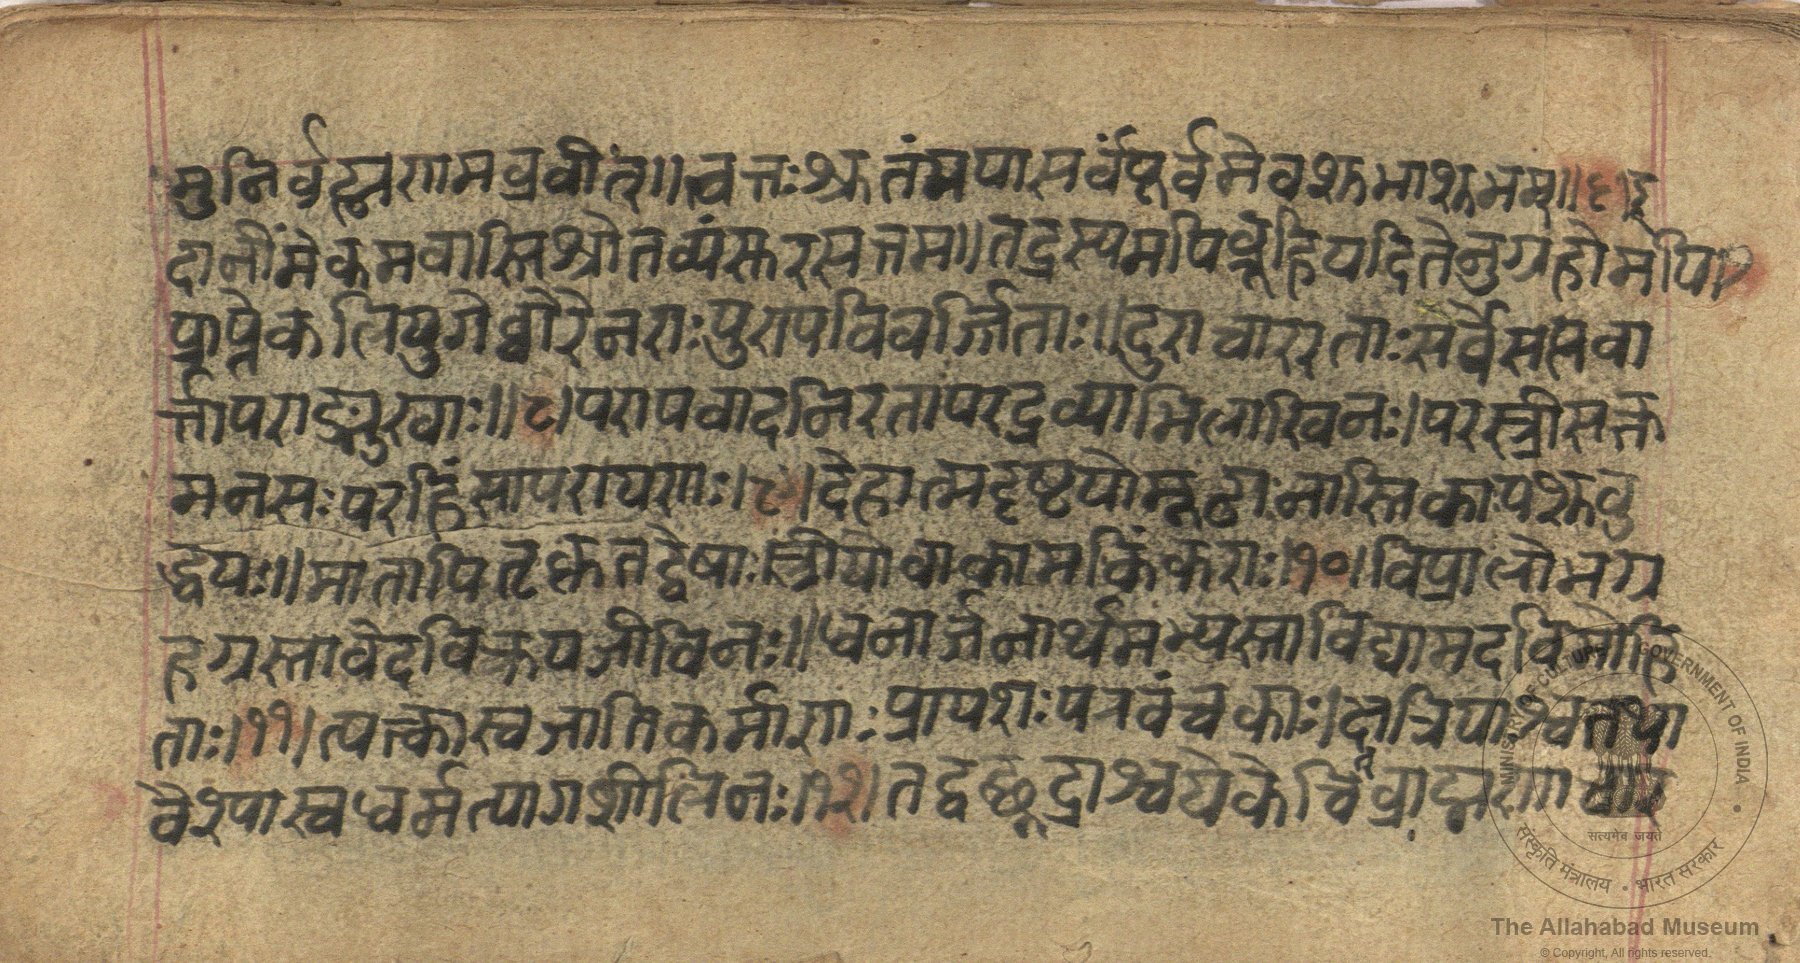 मुनिर्वह्माणमव्रवीत्॥त्वत्तःश्रुतंमयासर्वंपूर्वमेवशुभाशुभम्॥६।इ
दानीमेकमेवास्तिश्रोतव्यंसुरसत्तम॥तद्रस्यमपिव्रूहियदितेनुग्रहोमपि।
प्राप्तेकलियुगेघोरेनराःपुण्यविवर्ज्जिताः॥दुराचाररताःसर्वेसत्यवा
र्त्तापराङ्मुखाः॥८।परापवादनिरतापरद्रव्याभिलाखिनः।परस्त्रीसक्त
मनसःपरहिंसापरायणाः।९।देहात्मदृष्टयोमूढानास्तिकाःपशुवु
द्धयः॥मातापितृकृतद्वेषाःस्त्रीयोवाकामकिंकराः।१०।विप्रालोभग्र
हग्रस्तावेदविक्रयजीविनः॥धनार्जनार्थमभ्यस्ताविद्यामदविमोहि
ताः।११।त्यक्तास्वजातिकर्माणाःप्रायशःपरवंचकाः।क्षत्रियाश्चतथा
वैश्यास्वधर्मत्यागशीलिनः।१२।तद्वछूद्राश्चयेकेचिव्राह्मणाचार
MINISTRY OF CULTURE GOVERNMENT OF INDIA
सत्यमेव जयते
संस्कृति मंत्रालय • भारत सरकार
The Allahabad Museum
© Copyright, All rights reserved.